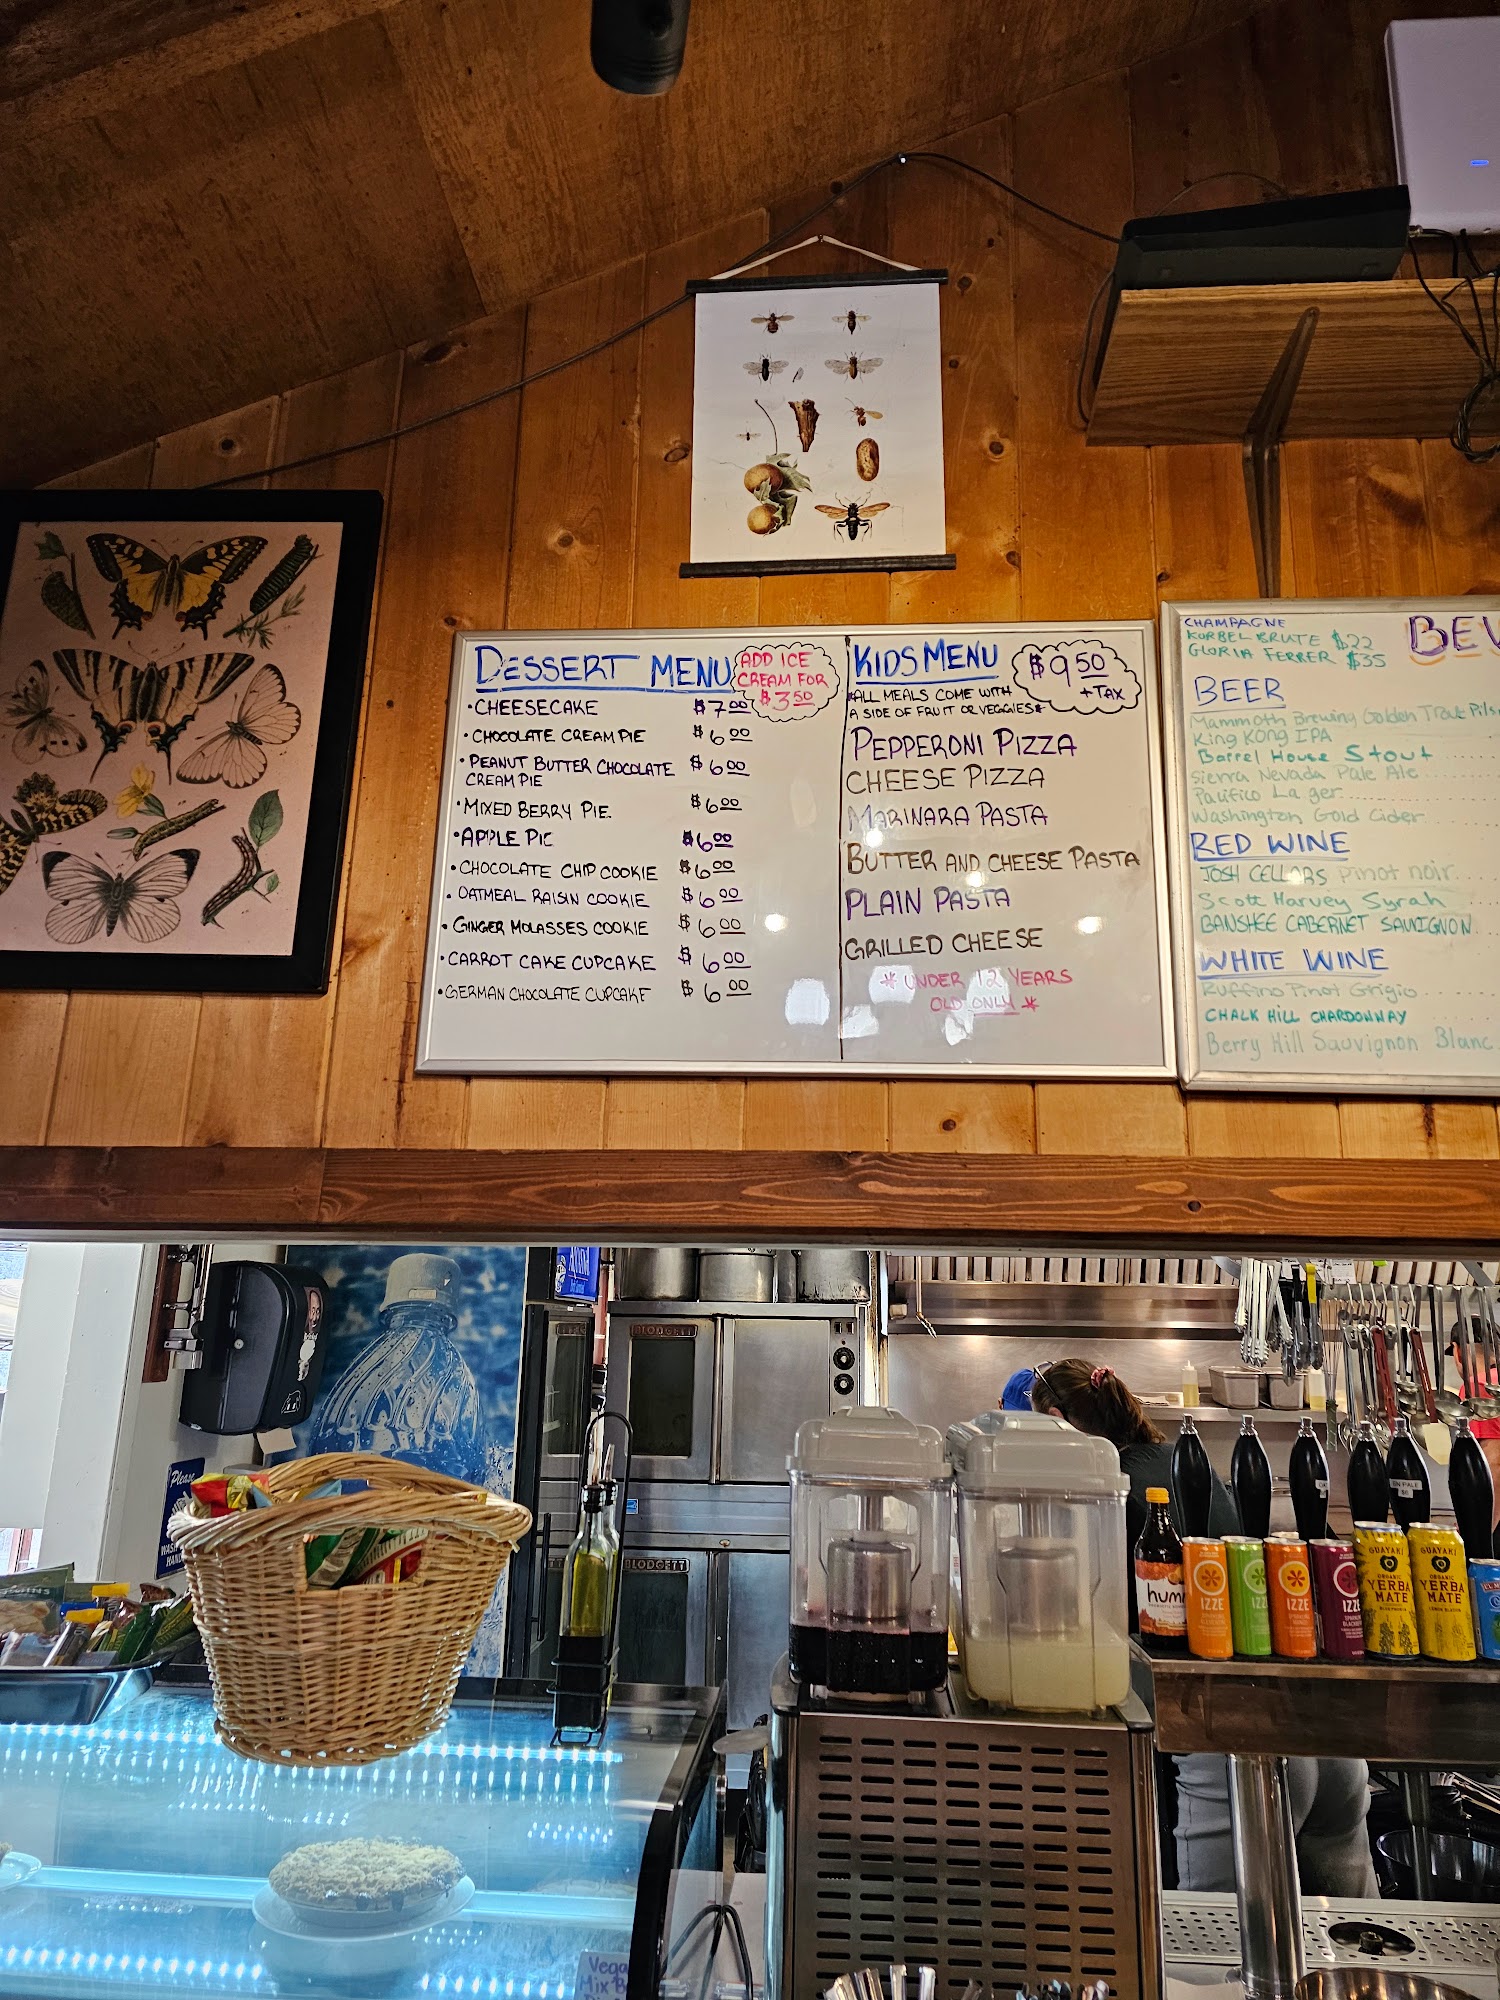 DESSERT MENU
ADD ICE
CREAM FOR
$3.50
• CHEESECAKE $7.00
• CHOCOLATE CREAM PIE $6.00
• PEANUT BUTTER CHOCOLATE $6.00
CREAM PIE
• MIXED BERRY PIE. $6.00
• APPLE PIE $6.00
• CHOCOLATE CHIP COOKIE $6.00
• OATMEAL RAISIN COOKIE $6.00
• GINGER MOLASSES COOKIE $6.00
• CARROT CAKE CUPCAKE $6.00
• GERMAN CHOCOLATE CUPCAKE $6.00
KIDS MENU
$9.50
+ TAX
*ALL MEALS COME WITH
A SIDE OF FRUIT OR VEGGIES*
PEPPERONI PIZZA
CHEESE PIZZA
MARINARA PASTA
BUTTER AND CHEESE PASTA
PLAIN PASTA
GRILLED CHEESE
* UNDER 12 YEARS
OLD ONLY *
CHAMPAGNE
KORBEL BRUTE $22
GLORIA FERRER $35
BEV
BEER
Mammoth Brewing Golden Trout Pils
King Kong IPA
Barrel House Stout
Sierra Nevada Pale Ale
Pacifico Lager
Washington Gold Cider
RED WINE
JOSH CELLARS Pinot noir
Scott Harvey Syrah
BANSHEE CABERNET SAUVIGNON
WHITE WINE
Ruffino Pinot Grigio
CHALK HILL CHARDONNAY
Berry Hill Sauvignon Blanc
BLODGETT
BLODGETT
Please
WASH
HAND
hum
IZZE
IZZ
IZZE
IZZE
GUAYAKI
YERBA
MATE
GUAYAKI
YERBA
MATE
Vega
Mix B